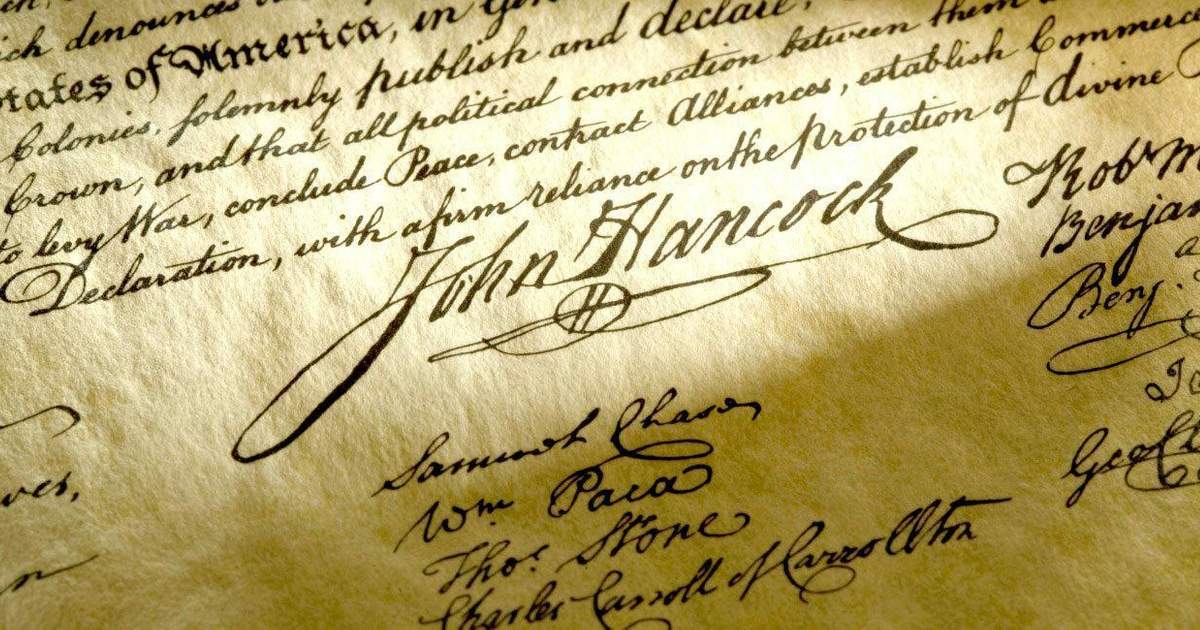 ich denounces
States of America, in Gen
Colonies, solemnly publish and declare,
Crown, and that all political connection between them
to levy War, conclude Peace, contract Alliances, establish Commerce
Declaration, with a firm reliance on the protection of divine
John Hancock
Samuel Chase
Wm. Paca
Thos. Stone
Charles Carroll of Carrollton
Robt M
Benjam
Benj.
Jo
Geo Cl
ves,